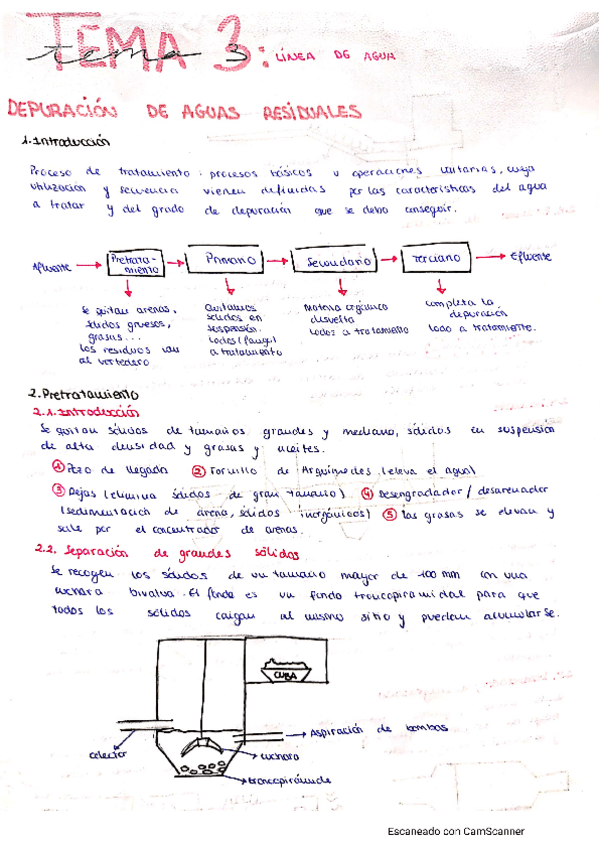 TEMA 3: LÍNEA DE AGUA
tema 3
DEPURACIÓN DE AGUAS RESIDUALES
1. Introducción
Proceso de tratamiento: procesos básicos u operaciones unitarias, cuya
utilización y secuencia vienen definidas por las características del agua
a tratar y del grado de depuración que se debe conseguir.
Afluente → Pretrata-miento → Primario → Secundario → Terciario → Efluente
Se quitan arenas,
sólidos gruesos,
grasas...
los residuos van
al vertedero
Quitamos
sólidos en
suspensión.
lodos (fango)
a tratamiento
Materia orgánica
disuelta
lodos a tratamiento
completa la
depuración
lodo a tratamiento.
2. Pretratamiento
2.1. Introducción
Se quitan sólidos de tamaños grandes y mediano, sólidos en suspensión
de alta densidad y grasas y aceites.
① Pozo de llegada ② Tornillo de Arquímedes (eleva el agua)
③ Rejas (elimina sólidos de gran tamaño) ④ Desengrasador / desarenador
(sedimentación de arena, sólidos inorgánicos) ⑤ las grasas se elevan y
sale por el concentrador de arenas.
2.2. Separación de grandes sólidos
Se recogen los sólidos de un tamaño mayor de 100 mm con una
cuchara bivalva. El fondo es un fondo troncopiramidal para que
todos los sólidos caigan al mismo sitio y puedan acumularse.
CUBA
Aspiración de bombas
colector
cuchara
troncopirámide
Escaneado con CamScanner